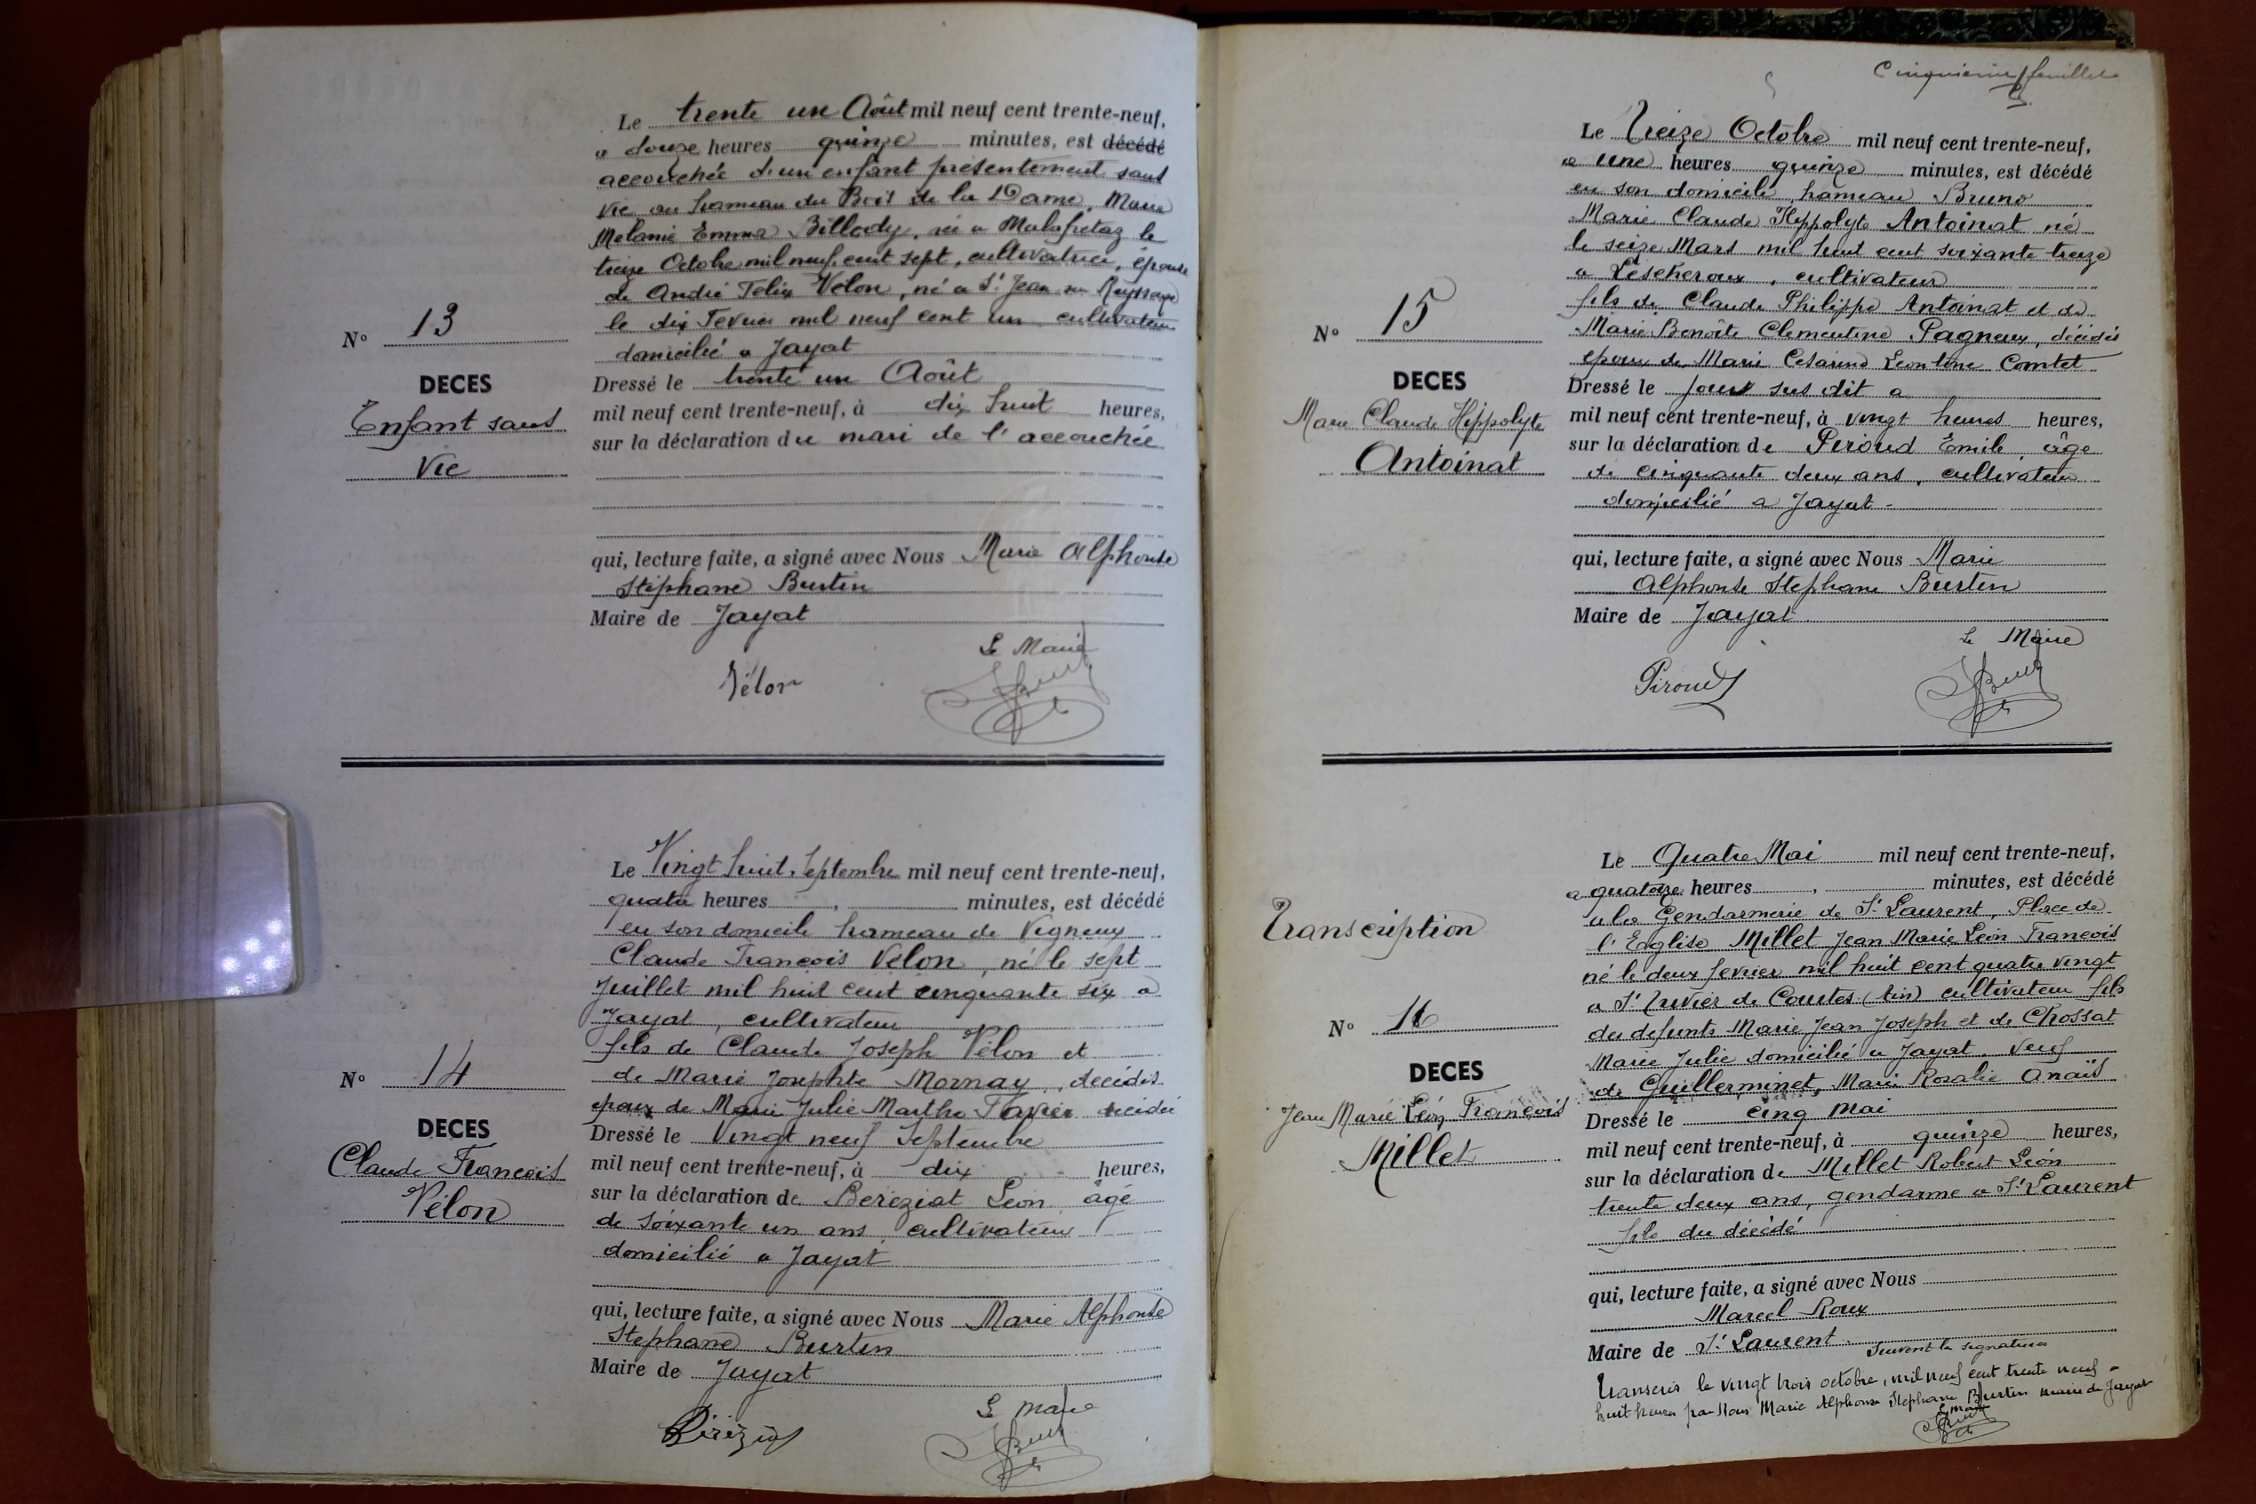 Le trente un Août mil neuf cent trente-neuf,
a douze heures quinze minutes, est décédé
accouchée d'un enfant présentement sans
vie au hameau du Bois de la Dame, Marie
Mélanie Emma Billody, née a Malafretaz le
treize Octobre mil neuf cent sept, cultivatrice, épouse
de André Felix Velon, né a St Jean sur Reyssouze
le dix Fevrier mil neuf cent un cultivateur
domicilié a Jayat
Dressé le trente un Août
mil neuf cent trente-neuf, à dix huit heures,
sur la déclaration du mari de l'accouchée
qui, lecture faite, a signé avec Nous Marie Alphonse
Stéphane Burtin
Maire de Jayat
Le Maire
Vélon
N° 13
DECES
Enfant sans
Vie
Le Vingt huit Septembre mil neuf cent trente-neuf,
quatre heures, minutes, est décédé
en son domicile hameau de Vigneux
Claude François Velon, né le sept
Juillet mil huit cent cinquante six a
Jayat, cultivateur
fils de Claude Joseph Vélon et
de Marie Josephte Mornay, décédés
epoux de Marie Julie Marthe Favier décédée
Dressé le Vingt neuf Septembre
mil neuf cent trente-neuf, à dix heures,
sur la déclaration de Béréziat Léon âgé
de soixante un ans cultivateur
domicilié a Jayat
qui, lecture faite, a signé avec Nous Marie Alphonse
Stephane Burtin
Maire de Jayat
Le Maire
Béréziat
N° 14
DECES
Claude Francois
Vélon
Cinquième feuillet
Le Treize Octobre mil neuf cent trente-neuf,
a une heures quinze minutes, est décédé
en son domicile, hameau Bruno
Marie Claude Hyppolyte Antoinat né
le seize Mars mil huit cent soixante treize
a Lescheroux, cultivateur
fils de Claude Philippe Antoinat et de
Marie Benoîte Clementine Pagneux, décédés
epoux de Marie Cesarine Leontine Comtet
Dressé le jour sus dit a
mil neuf cent trente-neuf, à vingt heures heures,
sur la déclaration de Piroud Emile, âgé
de cinquante deux ans, cultivateur
domicilié a Jayat.
qui, lecture faite, a signé avec Nous Marie
Alphonse Stephane Burtin
Maire de Jayat
Le Maire
Piroud
N° 15
DECES
Marie Claude Hippolyte
Antoinat
Le Quatre Mai mil neuf cent trente-neuf,
a quatorze heures, minutes, est décédé
a la Gendarmerie de St Laurent, Place de
l'Eglise Millet Jean Marie Léon François
né le deux fevrier mil huit cent quatre vingt
a St Trivier de Courtes (Ain) cultivateur fils
des defunts Marie Jean Joseph et de Chossat
Marie Julie domicilié a Jayat. Veuf
de Guillerminet, Marie Rosalie Anaïs
Dressé le cinq Mai
mil neuf cent trente-neuf, à quinze heures,
sur la déclaration de Millet Robert Léon
trente deux ans, gendarme a St Laurent
fils du décédé
qui, lecture faite, a signé avec Nous
Marcel Roux
Maire de St Laurent Suivent les signatures
Transcris le vingt trois octobre, mil neuf cent trente neuf a
huit heures par Nous Marie Alphonse Stephane Burtin maire de Jayat
Transcription
N° 16
DECES
Jean Marie Léon François
Millet